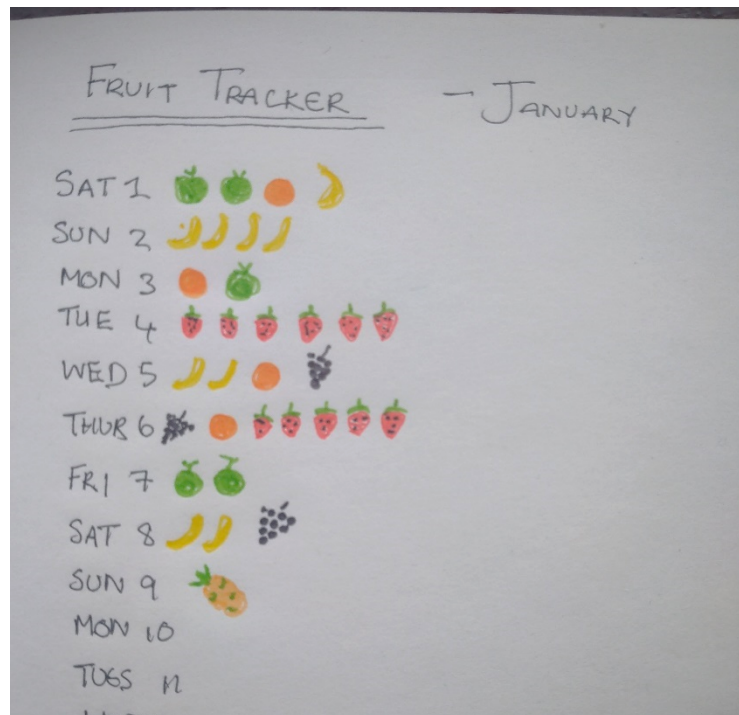 FRUIT TRACKER - JANUARY
SAT 1
SUN 2
MON 3
TUE 4
WED 5
THUR 6
FRI 7
SAT 8
SUN 9
MON 10
TUES 11